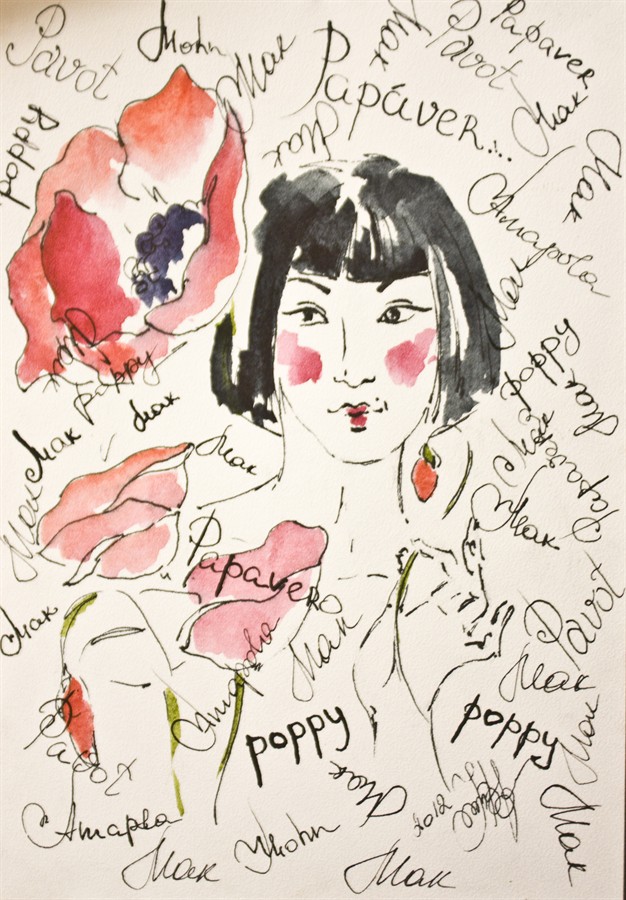 Pavot
Mohn
Мак
Papáver...
Мак
Pavot
Papaver
Мак
poppy
Мак
Мак
Amapola
poppy
poppy
Мак
Мак
Мак
Мак
Мак
Мак
Papavero
Мак
Pavot
Мак
Мак
Amapola
Мак
poppy
poppy
Мак
Мак
2012
Мак
Amapola
Mohn
Мак
Мак